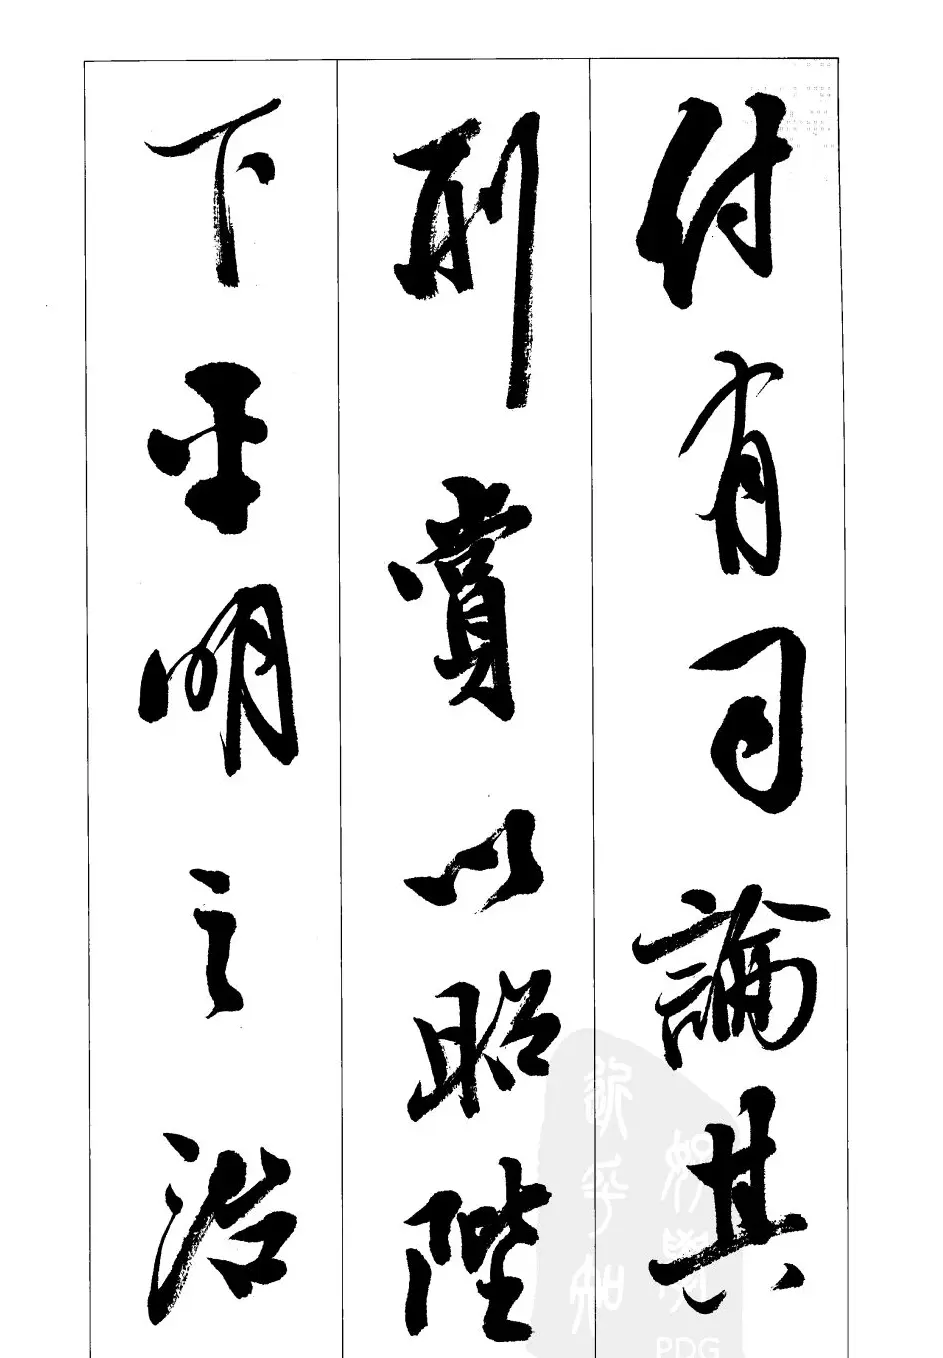 付有司論其
刑賞以昭陛
下平明之治
PDG